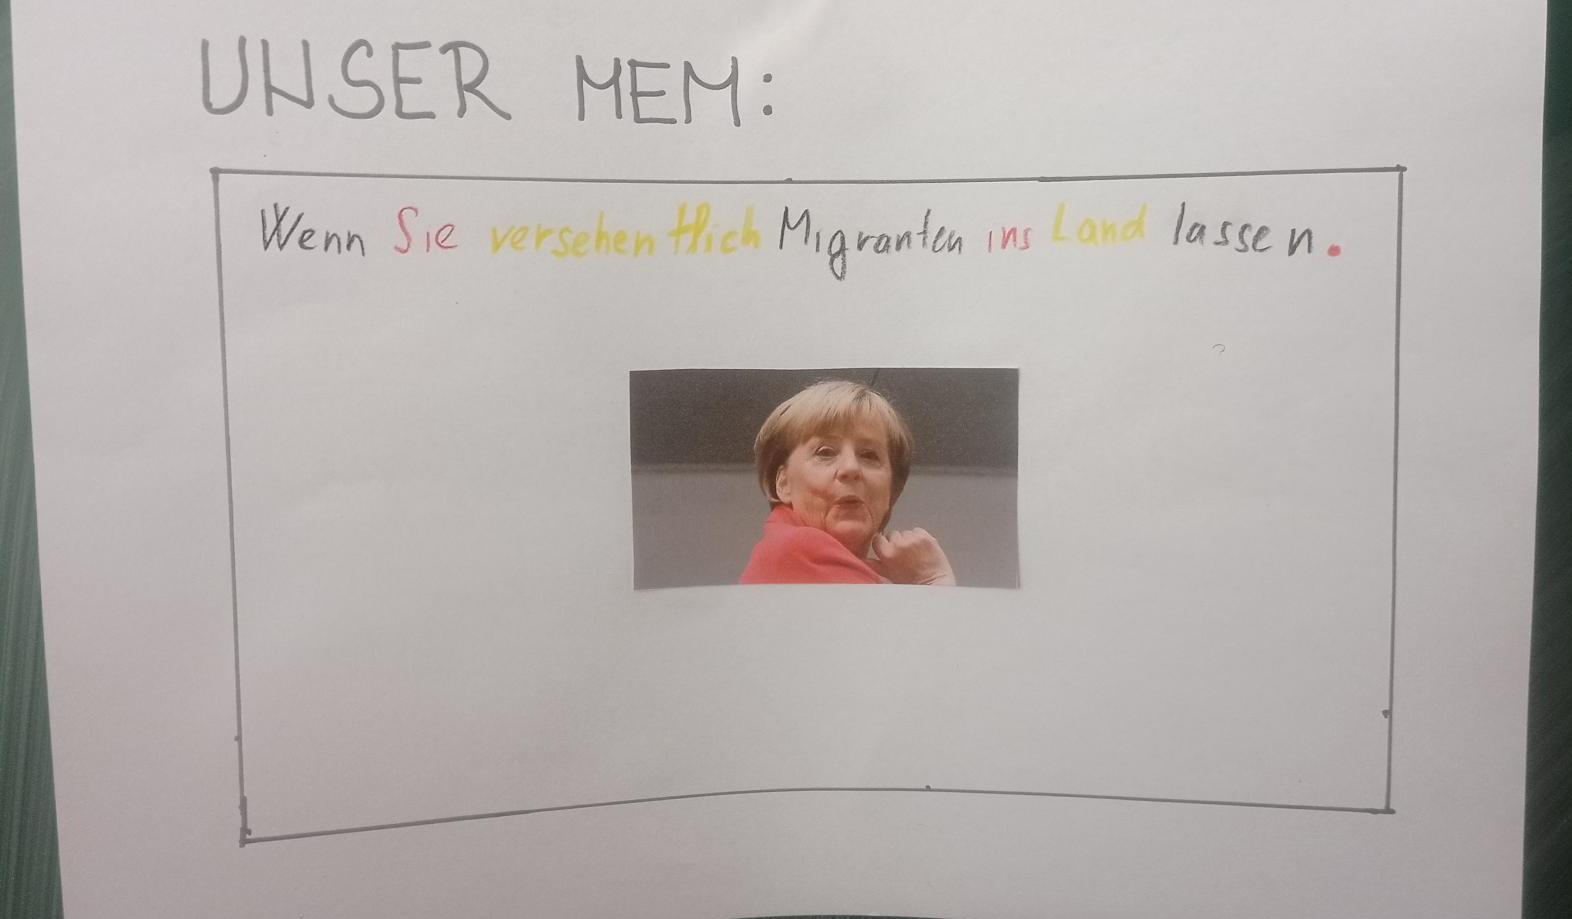 UNSER MEM:
Wenn Sie versehentlich Migranten ins Land lassen.